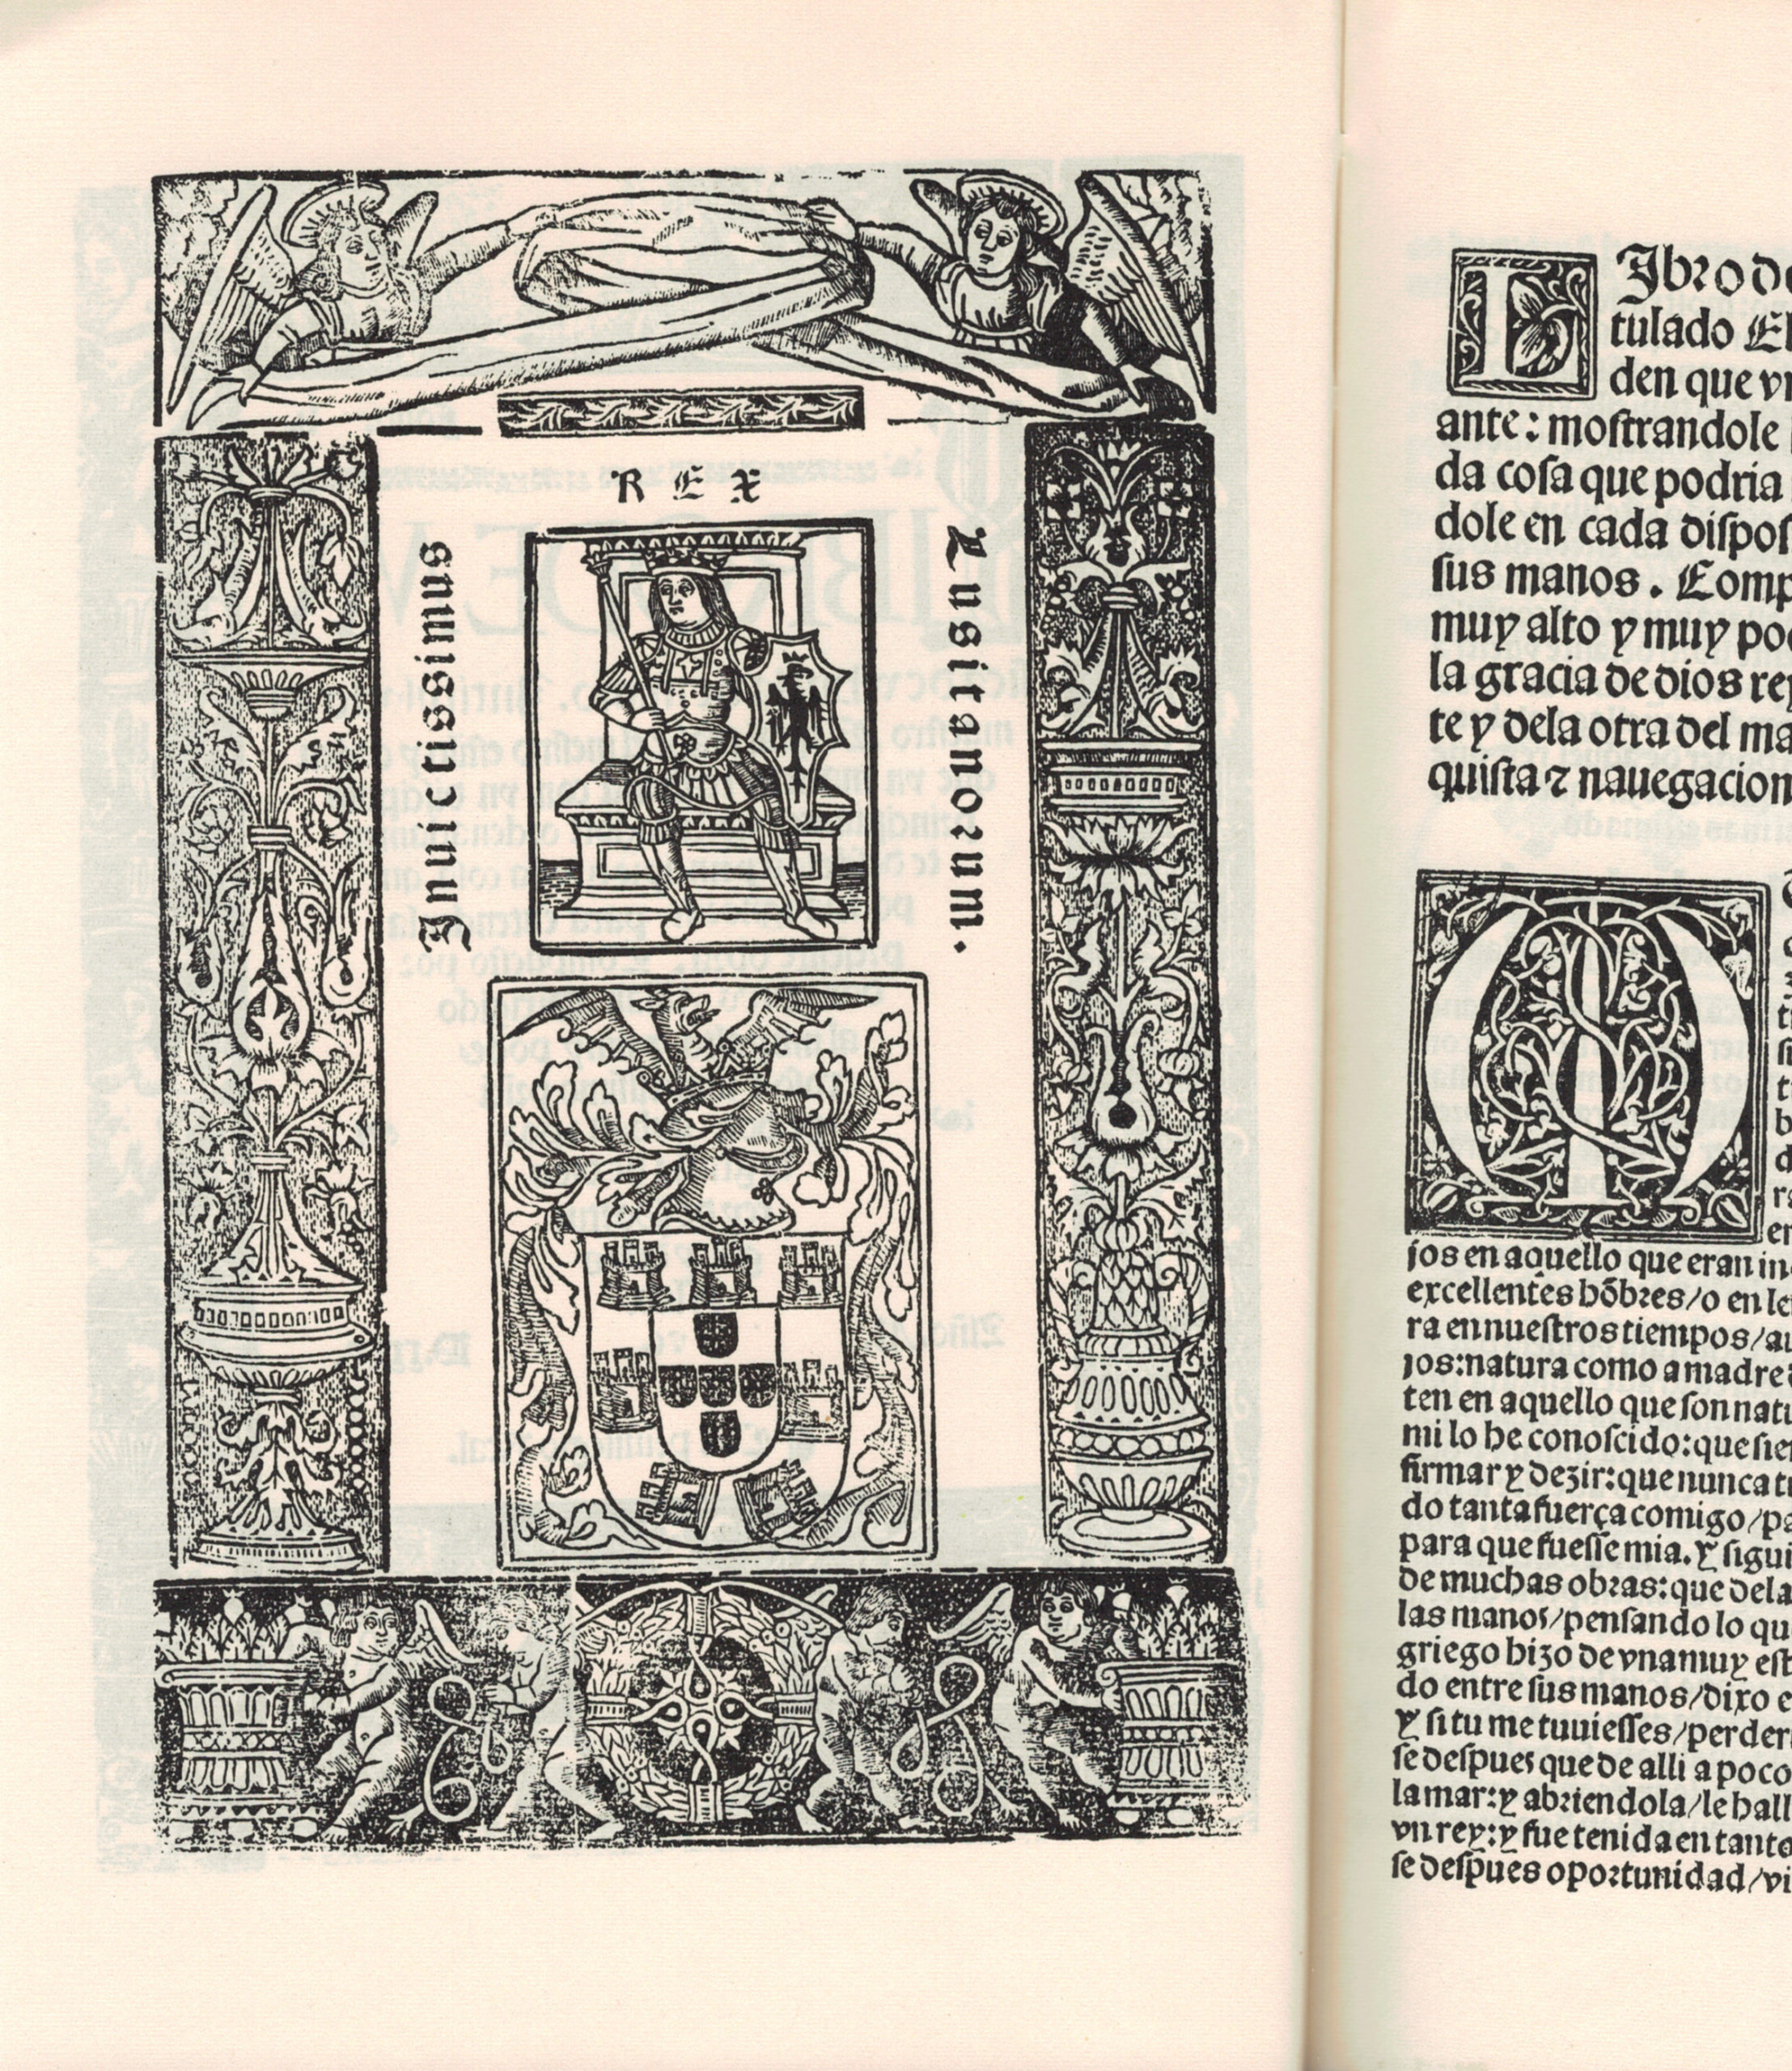 REX
Inuictissimus
Lusitanorum.
LIbro de
tulado El
den que vn
ante: moſtrandole
da coſa que podria
dole en cada diſpoſ
ſus manos. Comp
muy alto y muy po
la gracia de dios rey
te y dela otra del ma
quiſta ⁊ nauegacion
M
jos en aquello que eran in
excellentes hõbres/o en le
ra en nueſtros tiempos/au
jos:natura como a madre
ten en aquello que ſon natu
mi lo he conoſcido:que ſie
firmar y dezir:que nunca t
do tanta fuerça comigo/pa
para que fueſſe mia.Y ſigui
de muchas obras:que dela
las manos/penſando lo qu
griego hizo de vna muy eſt
do entre ſus manos/dixo e
Y ſi tu me tuuieſſes/perder
ſe deſpues que de alli a poco
la mar:y abriendola/le hall
vn rey:y fue tenida en tanto
ſe deſpues oportunidad/vi